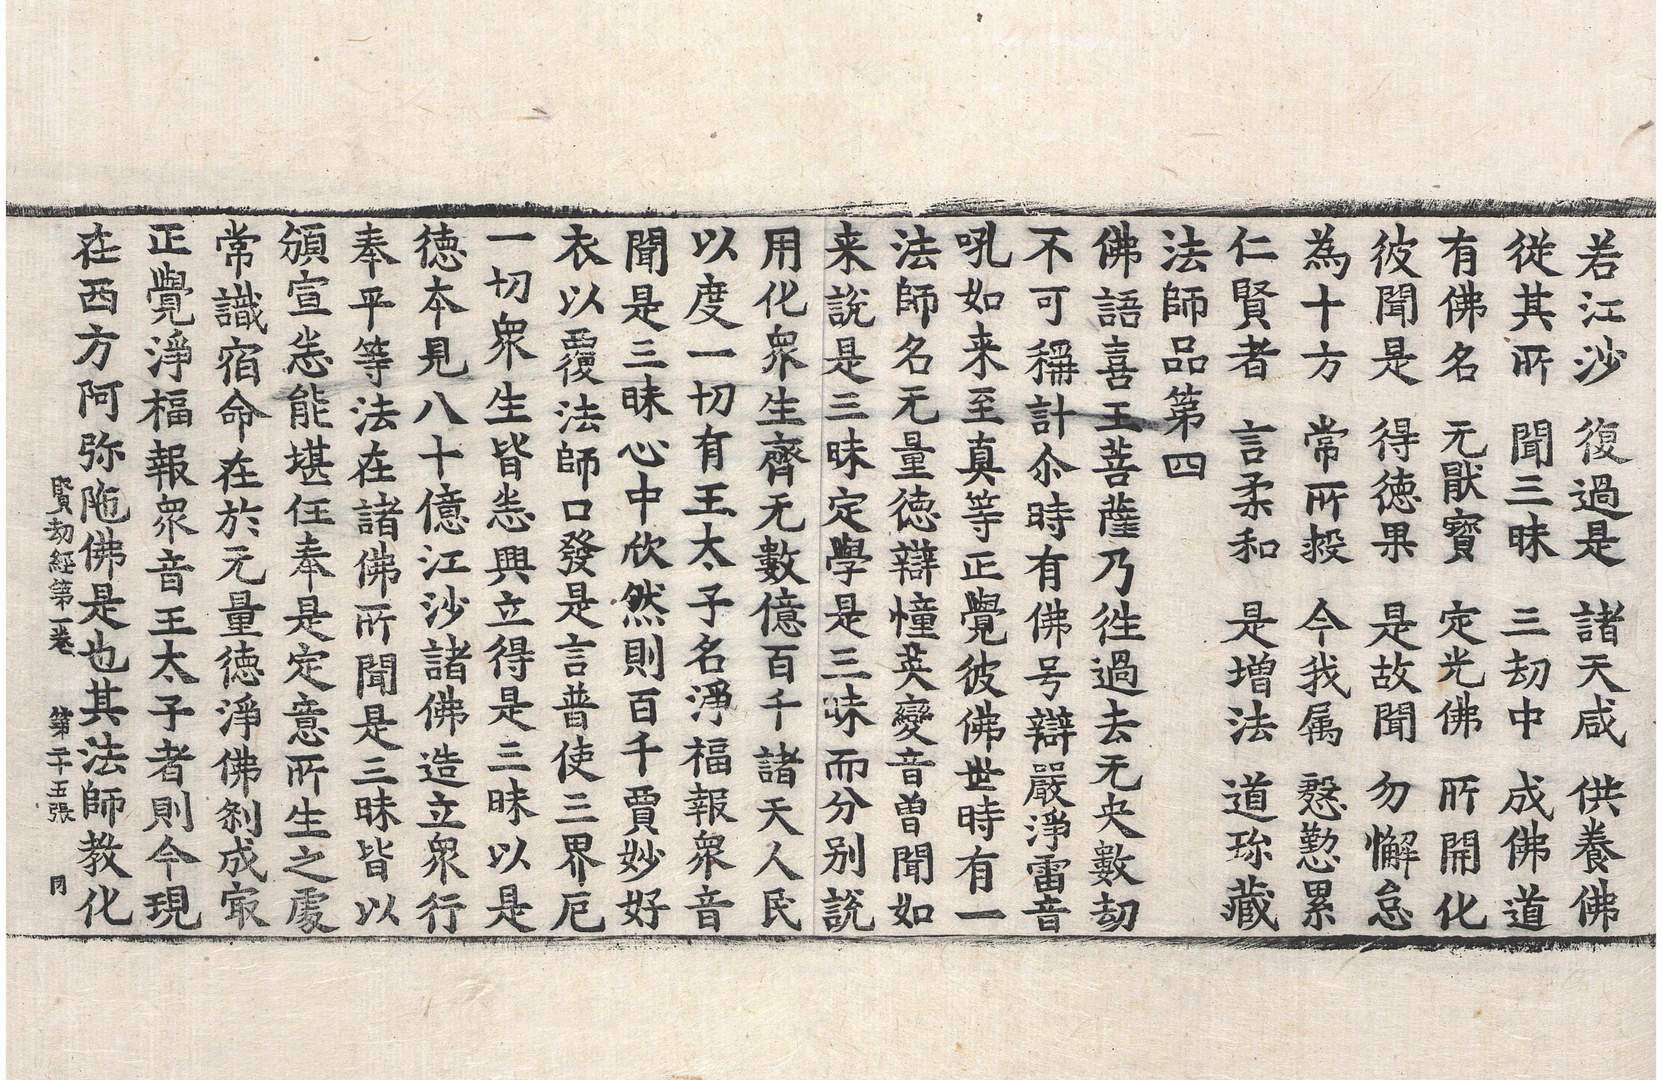 若江沙 復過是 諸天咸 供養佛
從其所 聞三昧 三劫中 成佛道
有佛名 无猒寶 定光佛 所開化
彼聞是 得德果 是故聞 勿懈怠
為十方 常所救 今我属 慇懃累
仁賢者 言柔和 是增法 道珎藏
法師品第四
佛語喜王菩薩乃徃過去无央數劫
不可稱計尒時有佛号辯嚴淨雷音
吼如来至真等正覺彼佛世時有一
法師名无量德辯憧英變音曽聞如
来說是三昧定學是三昧而分別說
用化衆生齊无數億百千諸天人民
以度一切有王太子名淨福報衆音
聞是三昧心中欣然則百千賈妙好
衣以覆法師口發是言普使三界厄
一切衆生皆悉興立得是三昧以是
德本見八十億江沙諸佛造立衆行
奉平等法在諸佛所聞是三昧皆以
頒宣悉能堪任奉是定意所生之處
常識宿命在於无量德淨佛刹成冣
正覺淨福報衆音王太子者則今現
在西方阿弥陁佛是也其法師教化
賢劫經第一卷 第二十五張 同